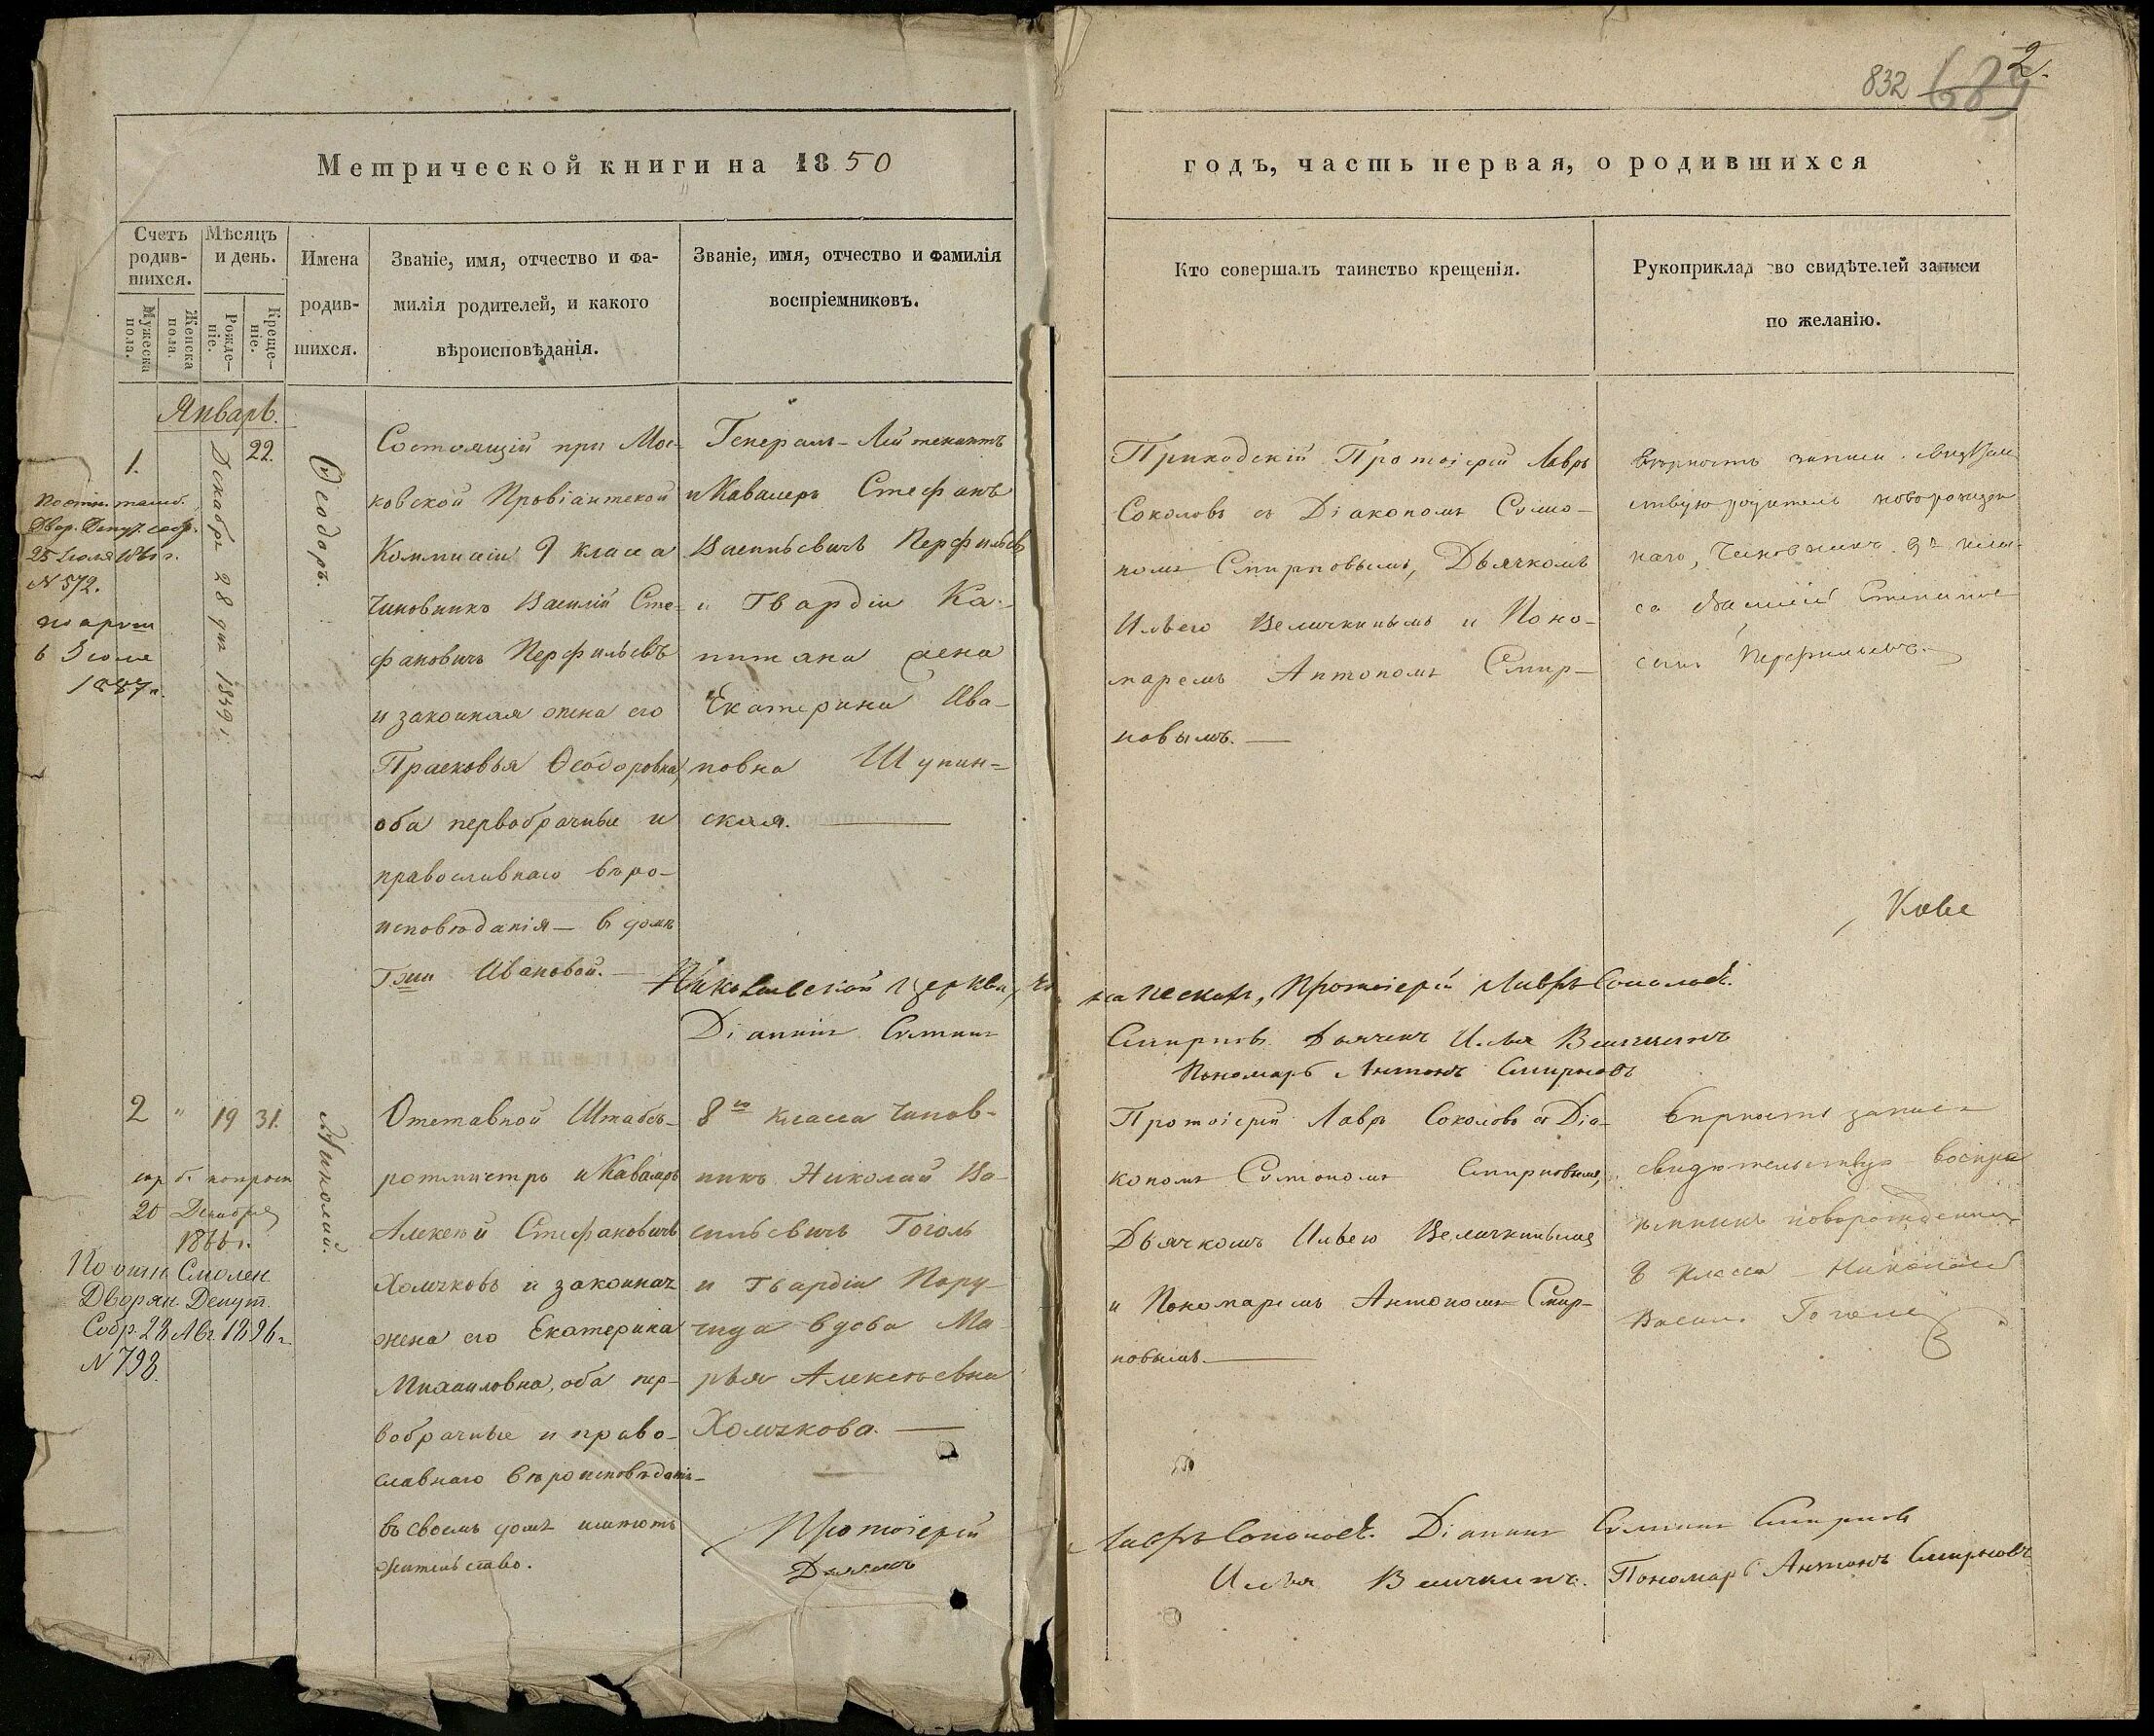 832 689 2.
Метрической книги на 1850
годъ, часть первая, о родившихся
Счетъ родив-
шихся.
Мужеска пола.
Женска пола.
Мѣсяцъ и день.
Рожде-
ніе.
Креще-
ніе.
Имена
родив-
шихся.
Званіе, имя, отчество и фа-
милія родителей, и какого
вѣроисповѣданія.
Званіе, имя, отчество и фамилія
воспріемниковъ.
Кто совершалъ таинство крещенія.
Рукоприклад тво свидѣтелей записи
по желанію.
Январь.
1.
Декабр. 28 дня 1849 г.
22.
Ѳеодоръ.
Двор. Депут. собр.
N 572.
Состоящій при Мос-
ковской Провіантской
Коммисіи 9 класса
чиновникъ Василій Сте-
фановичъ Перфильевъ
и законная жена его
Прасковья Ѳеодоровна,
оба первобрачные и
православнаго вѣро-
исповѣданія — в домѣ
Гжи Ивановой. —
Генералъ-Лейтенантъ
и Кавалеръ Стефанъ
Васильевичъ Перфильевъ
и Гвардіи Ка-
питана жена
Екатерина Ива-
новна Шупин-
ская. —
Приходскій Протоіерей Лавръ
Соколовъ съ Діакономъ Симо-
номъ Смирновымъ, Дьячкомъ
Ильею Величкинымъ и Поно-
маремъ Антономъ Смир-
новымъ. —
Вѣрность записи свидѣтель
ствую родитель новорожден
наго, Чиновникъ 9го клас-
са Василій Степановъ
сынъ Перфильевъ.
Николаевской церкви,
на пескахъ, Протоіерей Лавръ Соколовъ.
Діаконъ Симонъ
Смирновъ Дьячекъ Илья Величкинъ
Пономарь Антонъ Смирновъ
2 " 19 31.
Николай.
20 Декабря
По опн. Смолен.
Дворян. Депут.
Собр. 28 Авг. 1896 г.
N 798.
Отставной Штабсъ-
ротмистръ и Кавалеръ
Алексѣй Стефановичъ
Хомяковъ и законная
жена его Екатерина
Михаиловна, оба пер-
вобрачные и право-
славнаго вѣроисповѣданія
въ своемъ домѣ имѣютъ
жительство.
8го класса Чинов-
никъ Николай Ва-
сильевичъ Гоголь
и Гвардіи Пору-
чица вдова Ма-
рья Алексѣевна
Хомякова. —
Протоіерей Лавръ Соколовъ съ Діа-
кономъ Симономъ Смирновымъ,
Дьячкомъ Ильею Величкинымъ
и Пономаремъ Антономъ Смир-
новымъ. —
Вѣрность записи
свидѣтельствую воспри
емникъ новорожденнаго
8 класса Николай
Васил. Гоголь
Протоіерей
Лавръ Соколовъ. Діаконъ Симонъ Смирновъ
Дьячекъ
Илья Величкинъ. Пономарь Антонъ Смирновъ